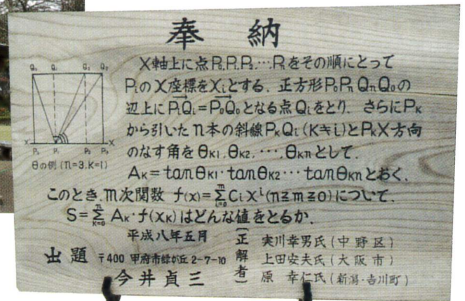 奉納
X軸上に点P₀P₁P₂…Pₙをその順にとって
PᵢのX座標をXᵢとする. 正方形P₀PₙQₙQ₀の
辺上にPᵢQᵢ=P₀Q₀となる点Qᵢをとり, さらにPₖ
から引いたn本の斜線PₖQᵢ(K≠i)とPₖX方向
のなす角をθₖ₁,θₖ₂,…,θₖₙとして.
Aₖ=tanθₖ₁·tanθₖ₂…tanθₖₙとおく.
このとき,m次関数 f(x)=Σᵢ₌₀ᵐCᵢXⁱ(n≧m≧0)について.
S=Σₖ₌₀ⁿAₖ·f(Xₖ)はどんな値をとるか.
Q₀ Q₁ Q₂
X
P₀ P₁ P₂ P₃
X
θの例(n=3.K=1)
平成八年五月
出題 〒400 甲府市緑が丘2-7-10
今井貞三
(正解者)
実川幸男氏(中野区)
上田安夫氏(大阪市)
原 幸仁氏(新潟·吉川町)